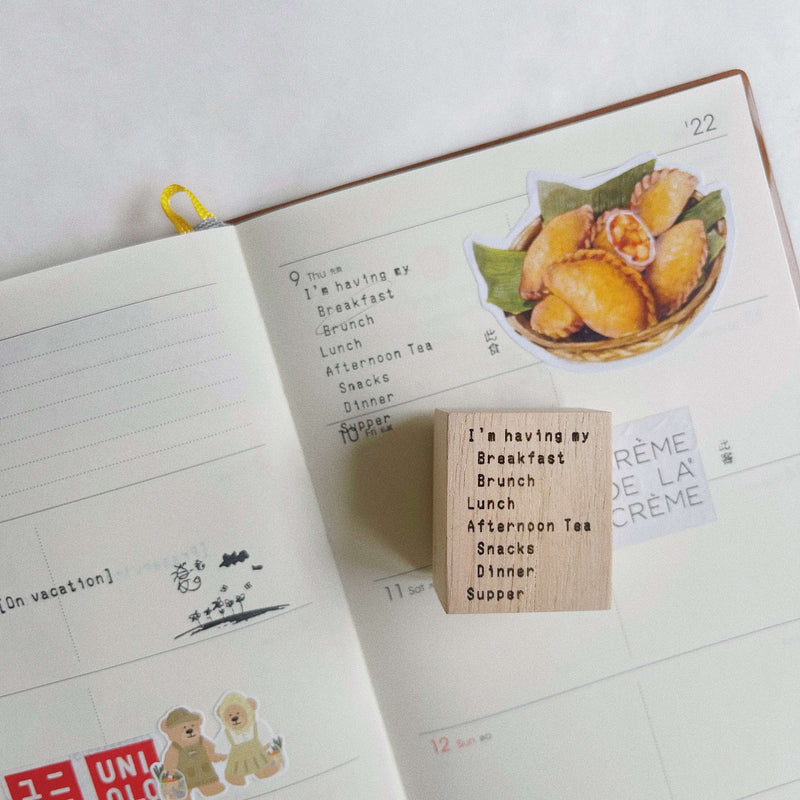 '22
9 Thu
I'm having my
Breakfast
Brunch
Lunch
Afternoon Tea
Snacks
Dinner
Supper
10 Fri
I'm having my
Breakfast
Brunch
Lunch
Afternoon Tea
Snacks
Dinner
Supper
CRÈME
DE LA
CRÈME
11 Sat
12 Sun
[On vacation]
ユニ
UNI
QLO